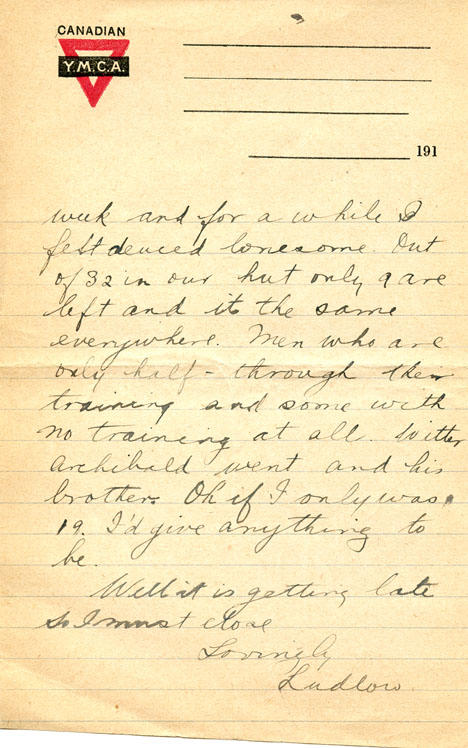 CANADIAN
Y.M.C.A.
191
week and for a while I
felt deuced lonesome. Out
of 32 in our hut only 9 are
left and it the same
everywhere. Men who are
only half - through their
training and some with
no training at all.
Archibald went and his
brother. Oh if I only was
19. I'd give anything to
be.
Well it is getting late
so I must close
Lovingly
Ludlow.